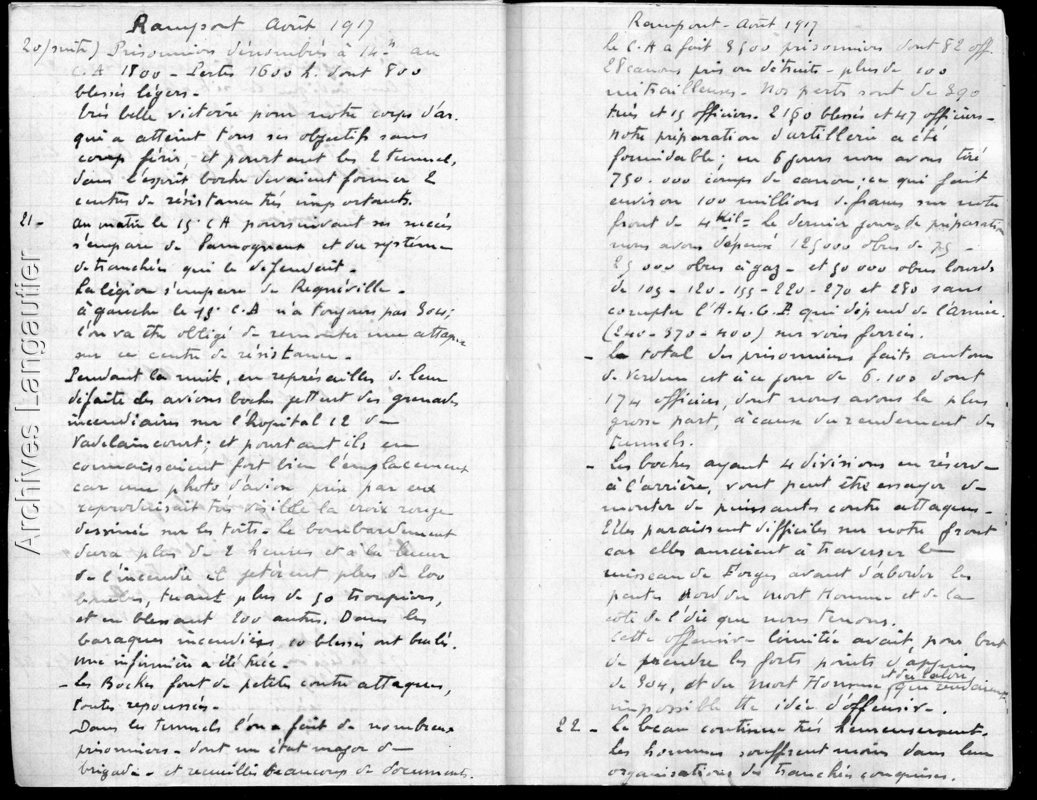 Archives Langautier
Rampont Août 1917
20 (suite) Prisonniers dénombrés à 14h au
C.A 1800 - Pertes 1600 h. dont 800
blessés légers -
très belle victoire pour notre corps d'ar.
qui a atteint tous ses objectifs sans
coup férir, et pourtant les 2 tunnel,
dans l'esprit boche devaient former 2
centres de résistance très importants.
21 - au matin le 15e CA poursuivant ses succès
s'empare de Samogneux et du système
de tranchées qui le défendent -
La légion s'empare de Regnéville -
à gauche le C.A n'a toujours pas 304;
l'on va être obligé de remonter une attaque
sur ce centre de résistance -
Pendant la nuit, en représailles de leur
défaite des avions boches jettent des grenades
incendiaires sur l'hopital 12 de
Vadelaincourt; et pourtant ils en
connaissaient fort bien l'emplacement
car une photo d'avion prise par eux
reproduisait très visible la croix rouge
dessinée sur les toits - le bombardement
dura plus de 2 heures et à la lueur
de l'incendie il jetèrent plus de 200
bombes, tuant plus de 50 troupiers,
et en blessant 200 autres. Dans les
baraques incendiées, 10 blessés ont brulé.
Une infirmière a été tuée -
- Les Boches font de petites contre attaques,
toutes repoussées -
Dans les tunnels l'on a fait de nombreux
prisonniers - dont un état major de
brigade - et recueillis beaucoup de documents.
Rampont - Août 1917
le C.A a fait 3500 prisonniers dont 82 off.
28 canons pris ou détruits - plus de 100
mitrailleuses - Nos perts sont de 390
tués et 15 officiers - 2150 blessés et 47 officiers -
notre préparation d'artillerie a été
formidable; en 6 jours nous avons tiré
750.000 coups de canon; ce qui fait
environ 100 millions de francs sur notre
front de 4 Kil - le dernier jour de préparation
nous avons dépensé 125000 obus de 75 -
25 000 obus à gaz - et 50 000 obus lourds
de 105 - 120 - 155 - 220 - 270 et 280 sans
compter l'A.L.G.P. qui dépend de l'armée.
(240 - 370 - 400) sur voies ferrées.
- Le total des prisonniers faits autour
de Verdun est à ce jour de 6.100 dont
174 officiers, dont nous avons la plus
grosse part, à cause du rendement des
tunnels.
- Les boches ayant 4 divisions en réserve
à l'arrière, vont peut être essayer de
monter de puissantes contre attaques -
Elles paraissent difficiles sur notre front
car elles auraient à traverser le
ruisseau de Forges avant d'aborder les
pentes Nord du Mort Homme et de la
cote de l'oie que nous tenons.
Cette offensive limitée avait, pour but
de prendre les forts points d'appuis
de 304, et du Mort Homme, et du Talou que rendaient
impossible tte idée d'offensive.
22 - Le beau continue très heureusement.
les hommes souffrent moins dans leur
organisations des tranchées conquises.